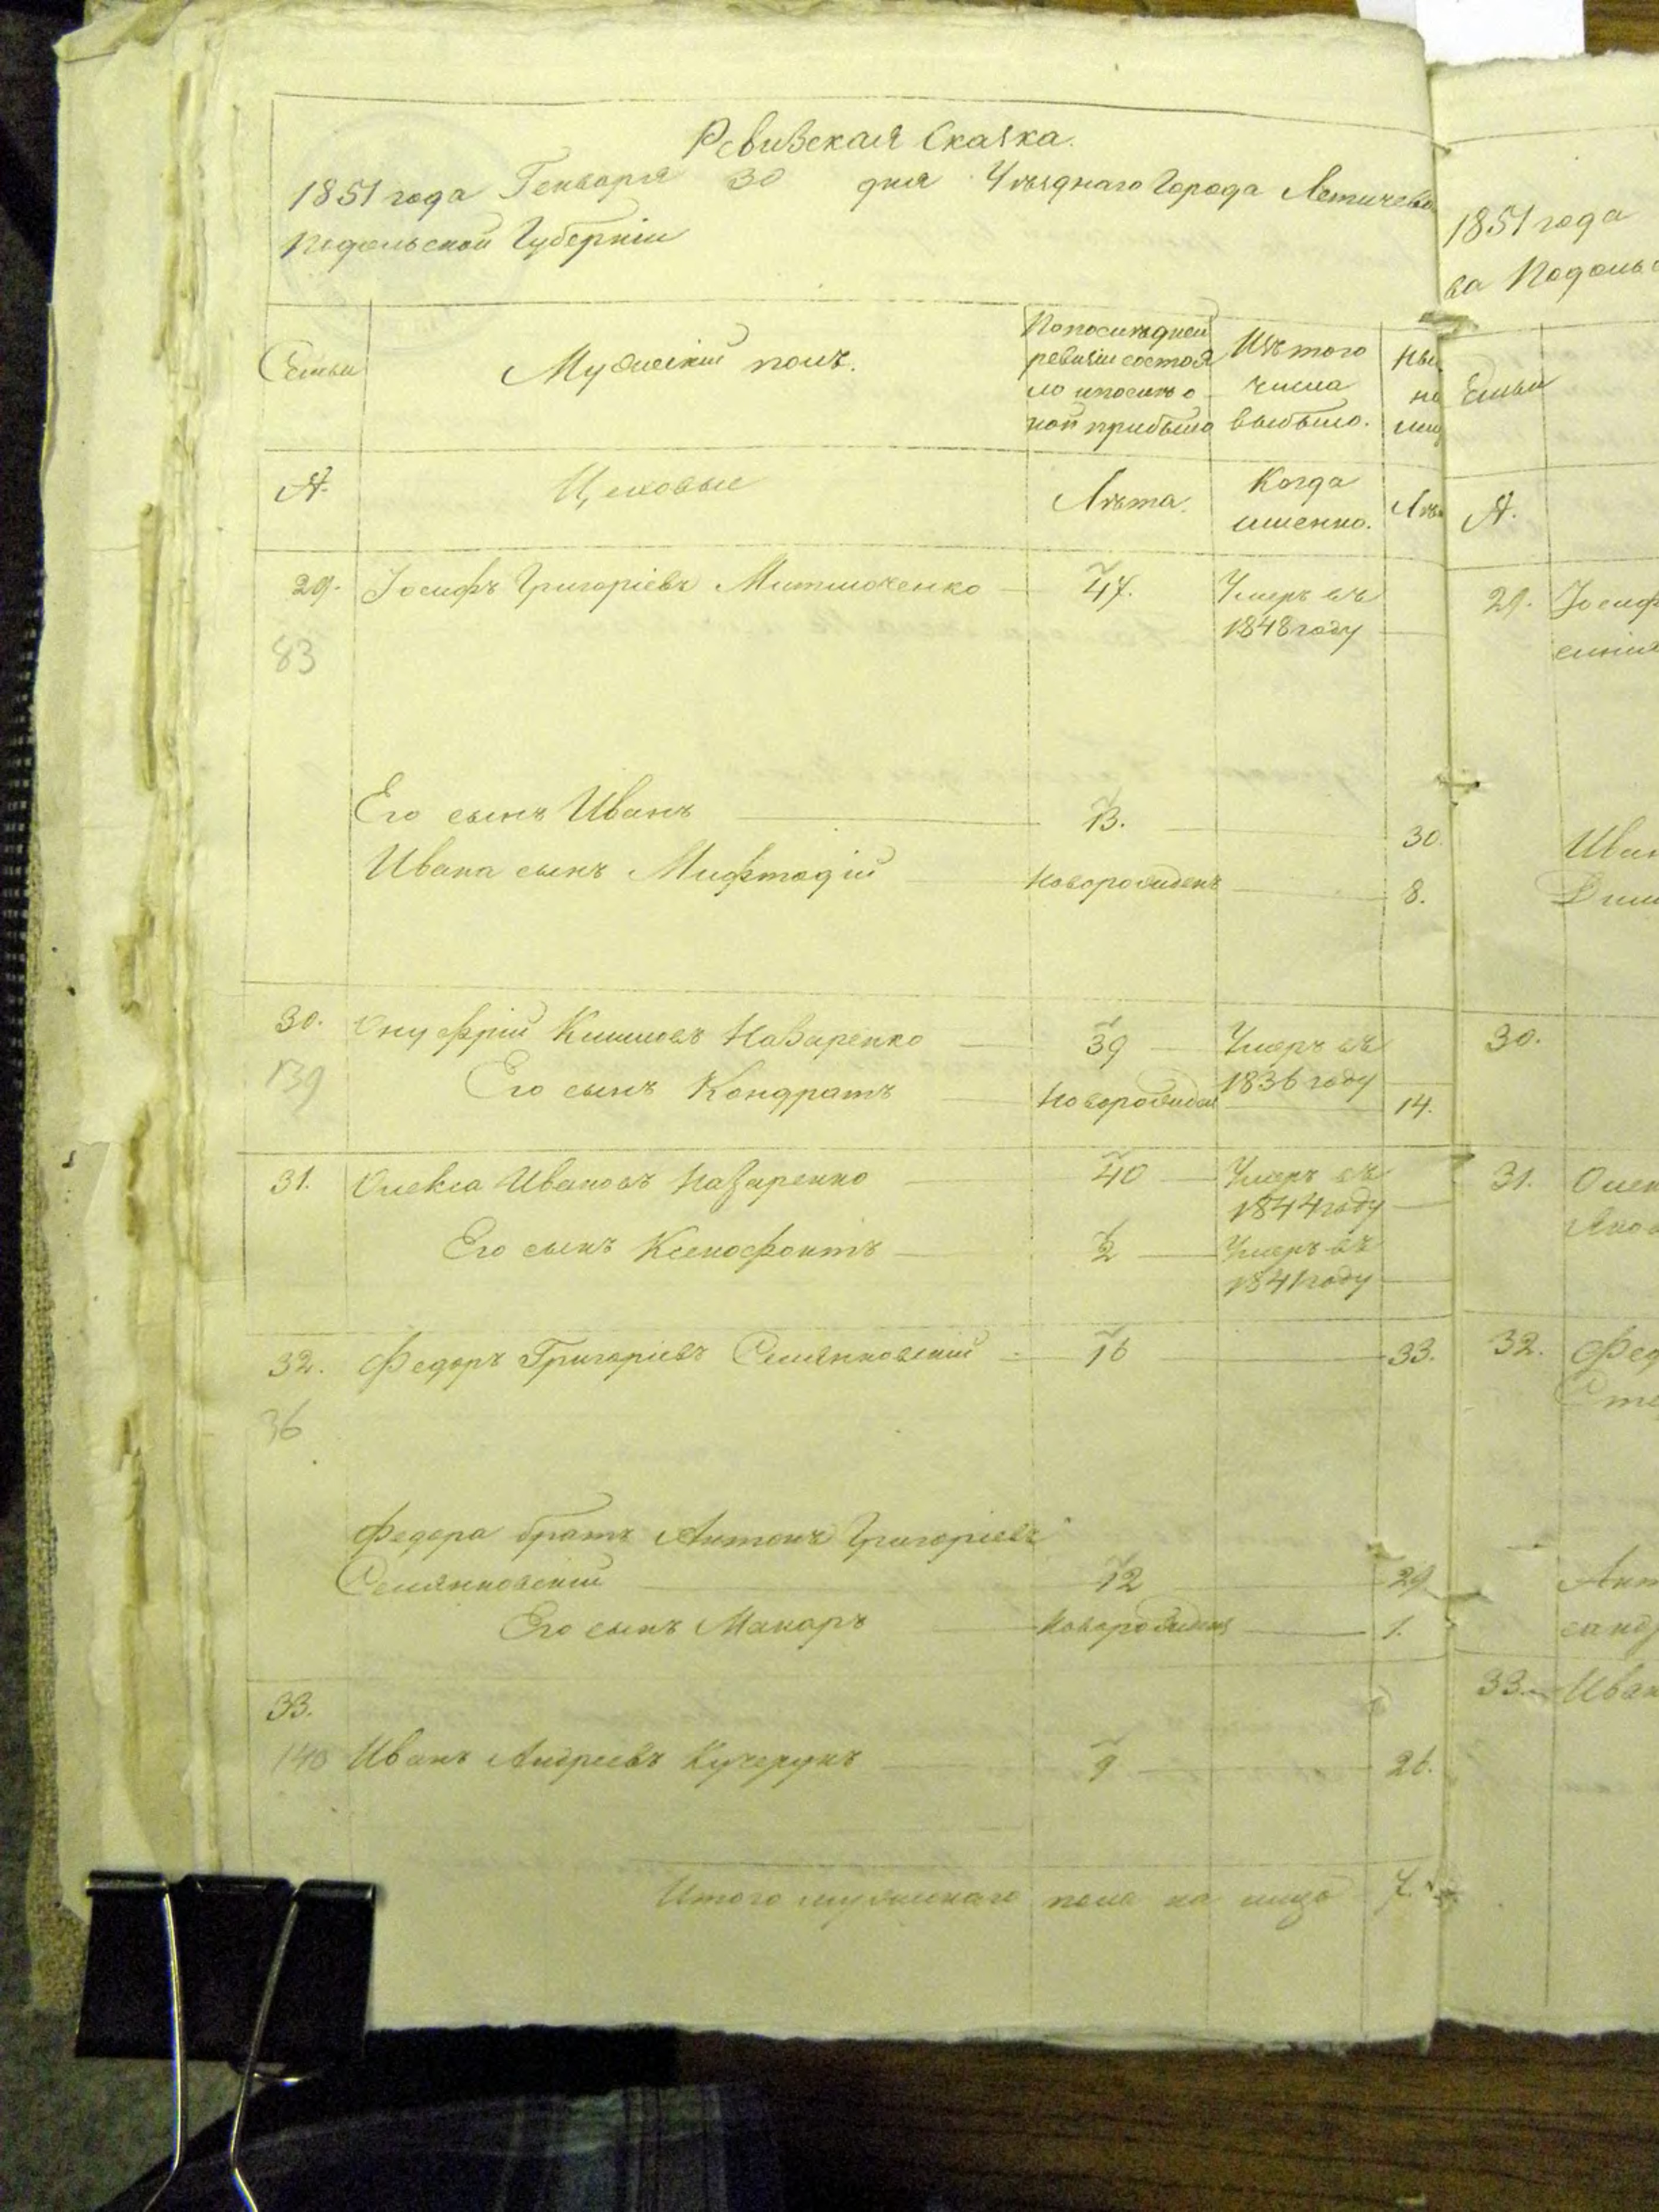 Ревизская Сказка.
1851 года Генваря 30 дня Уѣзднаго Города Летичева
Подольской Губерніи
Семьи
Мужескій полъ.
По послѣдней
ревизіи состоя
ло и послѣ о
ной прибыло
Изъ того
числа
выбыло.
Ны
не
лиц
№.
Цеховые
Лѣта.
Когда
именно.
Лѣ
29. Іосифъ Григоріевъ 47. Умеръ въ
1848 году
83
Его сынъ Иванъ 13. 30.
Ивана сынъ Мифтодій Новорожденъ 8.
30. Онуфрій Климовъ Назаренко 39 Умеръ въ
1836 году
139 Его сынъ Кондратъ Новорожден 14.
31. Олекса Ивановъ Назаренко 40 Умеръ въ
1844 году
Его сынъ Ксенофонтъ 2 Умеръ въ
1841 году
32. Федоръ Григоріевъ Семянковскій 16 33.
36
Федора братъ Антонъ Григоріевъ
Семянковскій 12 29
Его сынъ Макаръ Новорожденъ 1.
33.
140 Иванъ Андреевъ Кучерукъ 9 26.
Итого мужескаго пола на лицо 7.
1851 года
ва Подольс
Семьи
№.
29. Іосиф
Иван
30.
31. Олек
32. Фед
Сте
Ант
санд
33. Иван